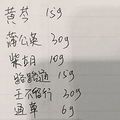 黄芩 15g
蒲公英 30g
柴胡 10g
路路通 15g
王不留行 30g
通草 6g